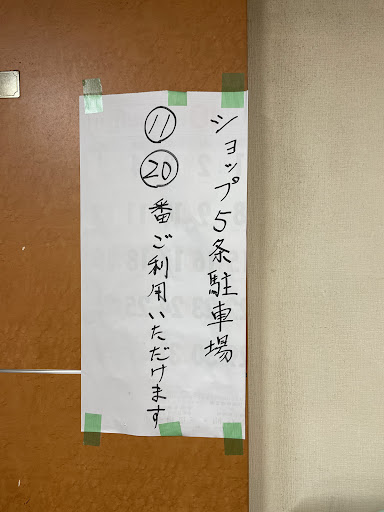 ショップ5条駐車場
⑪⑳番ご利用いただけます